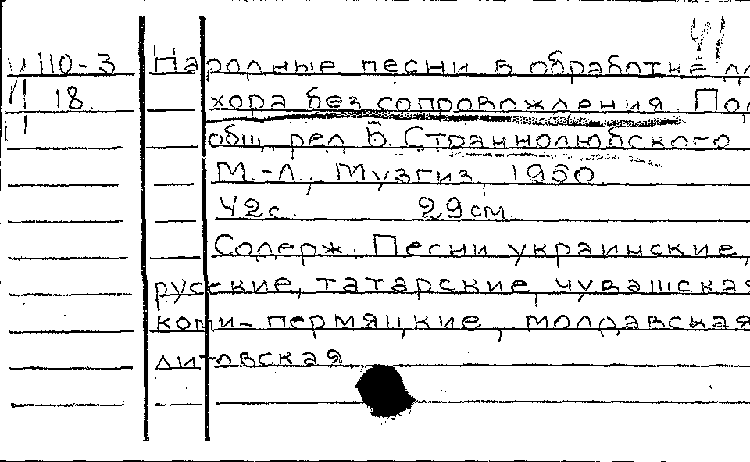 41
110-3 Народные песни в обработке дл
18 хора без сопровождения. Под
общ. ред. Б. Страннолюбского
М.-Л., Музгиз, 1950.
42 с. 29 см.
Содерж. Песни украинские,
русские, татарские, чувашская
коми-пермяцкие, молдавская
литовская.